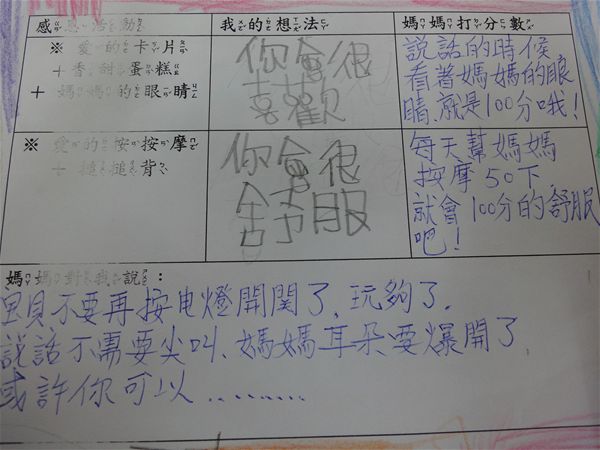 感恩活動 我的想法 媽媽打分數
※ 愛的卡片
+香甜蛋糕
+ 媽媽的眼睛
你會很
喜歡
說話的時候
看著媽媽的眼
睛.就是100分哦!
※ 愛的按按摩
+ 搥搥背
你會很
舒服
每天幫媽媽
按摩50下
就會100分的舒服
吧!
媽媽對我說:
貝不要再按电燈開関了.玩夠了.
說話不需要尖叫、媽媽耳朵要爆開了
或許你可以.........